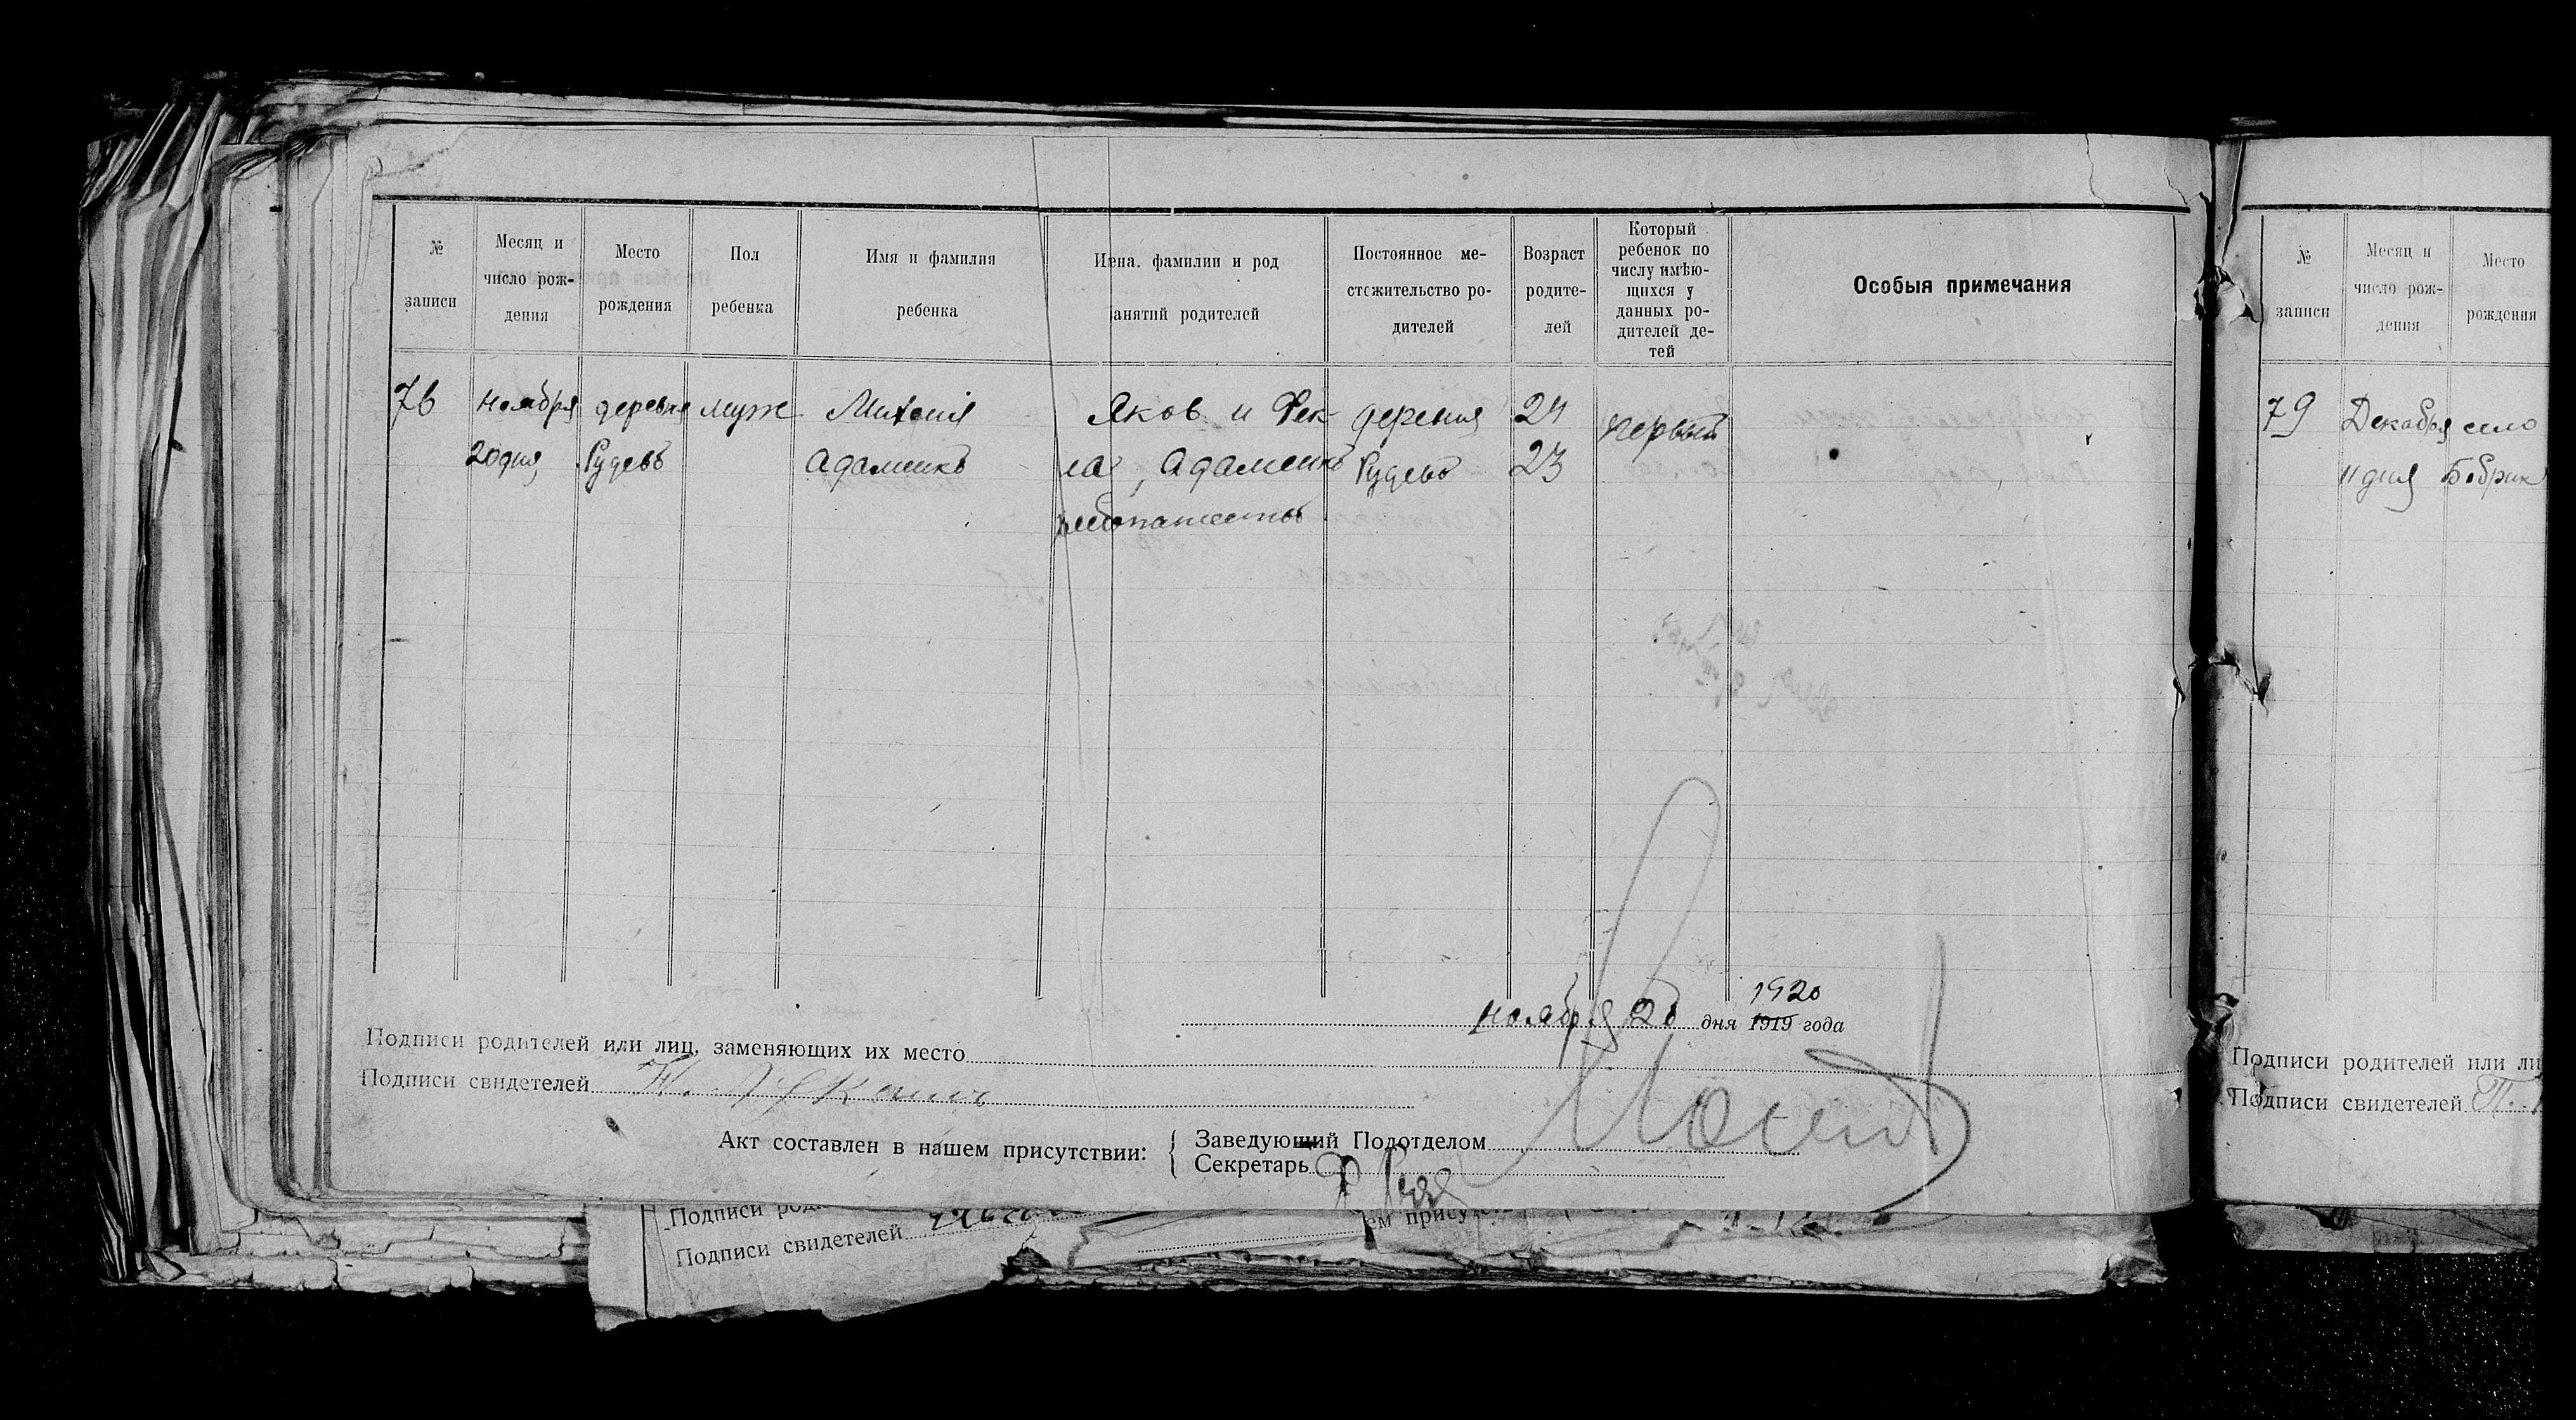 № записи
Месяц и число рождения
Место рождения
Пол ребенка
Имя и фамилия ребенка
Имена. фамилии и род занятий родителей
Постоянное местожительство родителей
Возраст родителей
Который ребенок по числу имѣющихся у данных родителей детей
Особыя примечания
76 ноября деревня муж Михаил Яков и Фек- деревня 24 первый
20 дня Рудевъ Адаменко ла Адаменко Рудевъ 23
хлебопашество
1920
ноября 20 дня 1919 года
Подписи родителей или лиц, заменяющих их место
Подписи свидетелей
Акт составлен в нашем присутствии:
Заведующий Подотделом
Секретарь
Подписи свидетелей
№ записи
Месяц и число рождения
Место рождения
79 Декабря село
11 дня Бобрик
Подписи родителей или ли
Подписи свидетелей